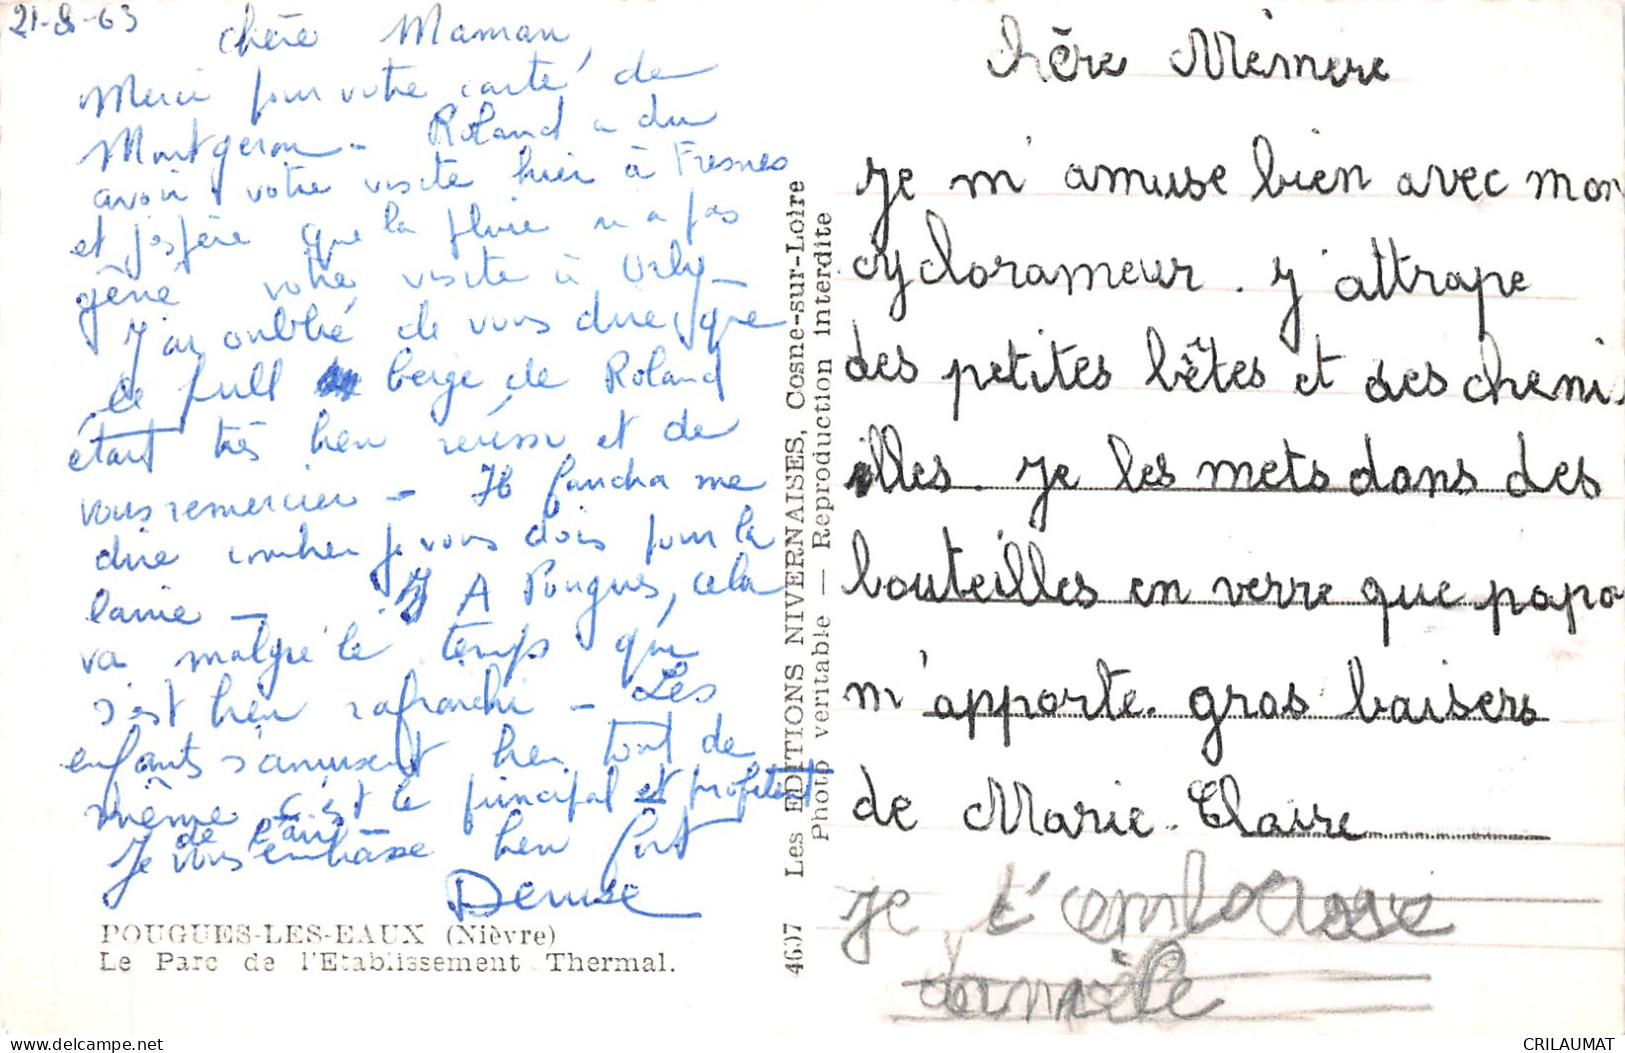 21-8-63
chère Maman,
Merci pour votre carte de
Montgeron - Roland a du
avoir votre visite hier à Fresnes
et j'espère que la pluie n'a pas
gêné votre visite à Orly -
J'ai oublié de vous dire que
le pull beige de Roland
étant très bien réussi et de
vous remercier - Il faudra me
dire combien je vous dois pour la
laine - A Pougues, cela
va malgré le temps qui
s'est bien rafraichi - Les
enfants s'amusent bien tout de
même - c'est le principal et profitent
de l'air
Je vous embrasse bien fort
Denise
POUGUES-LES-EAUX (Nièvre)
Le Parc de l'Etablissement Thermal.
4607 Les EDITIONS NIVERNAISES, Cosne-sur-Loire
Photo véritable — Reproduction interdite
chère Mémère
je m'amuse bien avec mon
cyclorameur. j'attrape
des petites bêtes et des cheni
illes. je les mets dans des
bouteilles en verre que papa
m'apporte. gros baisers
de Marie-Claire
je t'embrasse
danièle
CRILAUMAT
www.delcampe.net